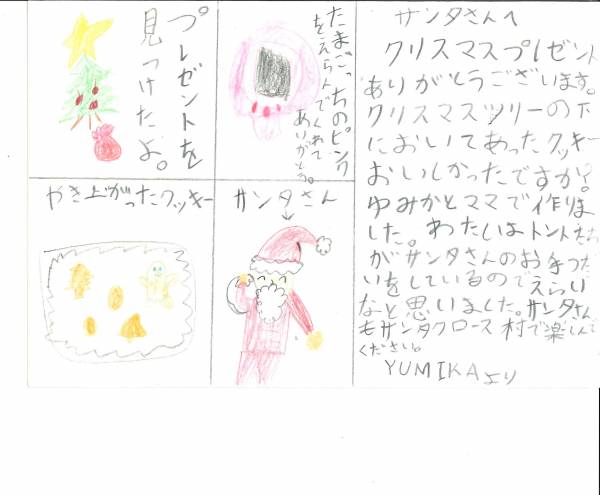 サンタさんへ
クリスマスプレゼント
ありがとうございます。
クリスマスツリーの下
においてあったクッキー
おいしかったですか?
ゆみかとママで作りま
した。わたしはトントたち
がサンタさんのお手つだ
いをしているのでえらい
なと思いました。サンタさん
もサンタクロース村で楽しんで
ください。
YUMIKAより
たまごっちのピンク
をえらんでくれて
ありがとう。
プレゼントを
見つけたよ。
サンタさん
やき上がったクッキー